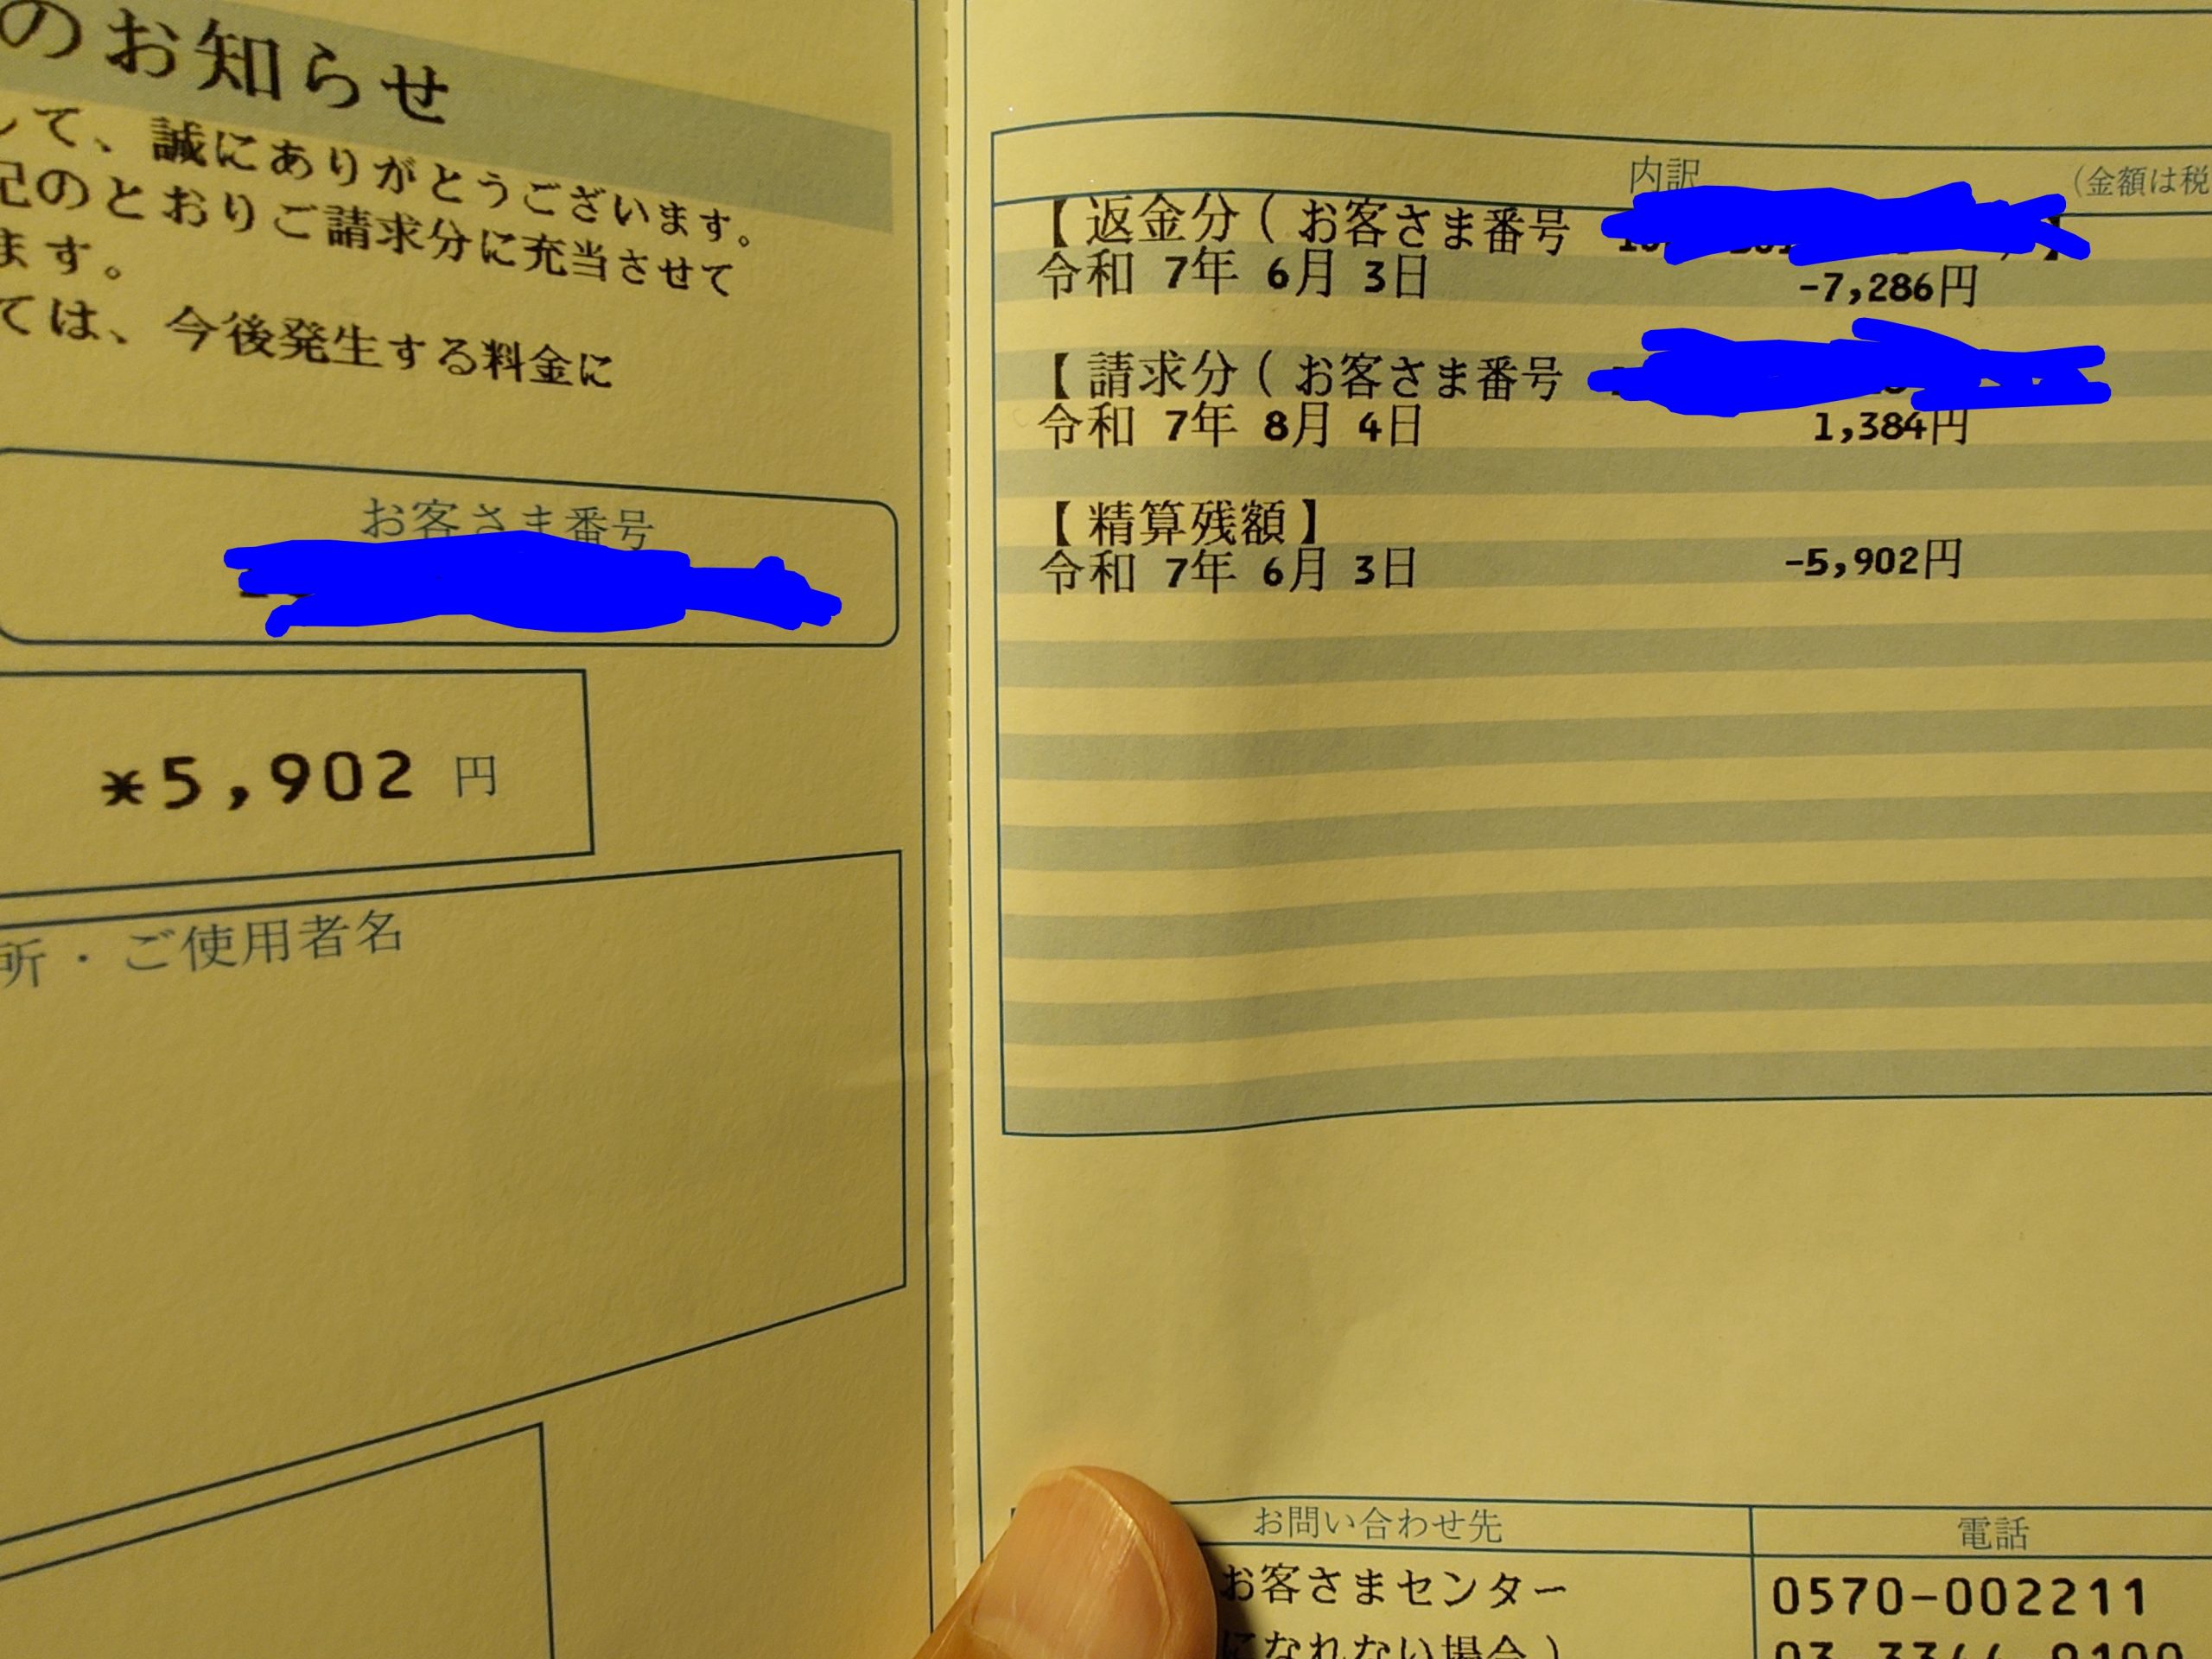 のお知らせ
して、誠にありがとうございます。
記のとおりご請求分に充当させて
ます。
ては、今後発生する料金に
お客さま番号
*5,902 円
所・ご使用者名
内訳
(金額は税
【 返金分 ( お客さま番号
令和 7年 6月 3日 -7,286円
【 請求分 ( お客さま番号
令和 7年 8月 4日 1,384円
【 精算残額 】
令和 7年 6月 3日 -5,902円
お問い合わせ先 電話
お客さまセンター 0570-002211
になれない場合 )